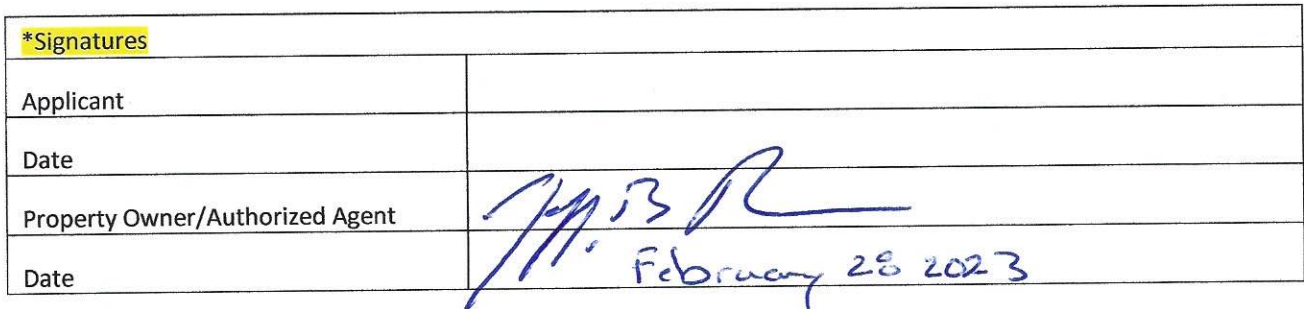 *Signatures
Applicant
Date
Property Owner/Authorized Agent
Date February 28 2023